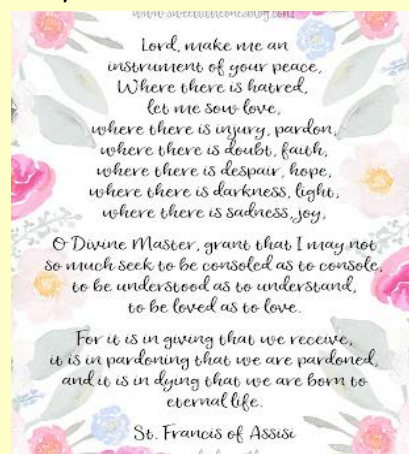 www.sweetlittleonesblog.com
Lord, make me an
instrument of your peace,
Where there is hatred,
let me sow love,
where there is injury, pardon,
where there is doubt, faith,
where there is despair, hope,
where there is darkness, light,
where there is sadness, joy,
O Divine Master, grant that I may not
so much seek to be consoled as to console,
to be understood as to understand,
to be loved as to love.
For it is in giving that we receive,
it is in pardoning that we are pardoned,
and it is in dying that we are born to
eternal life.
St. Francis of Assisi